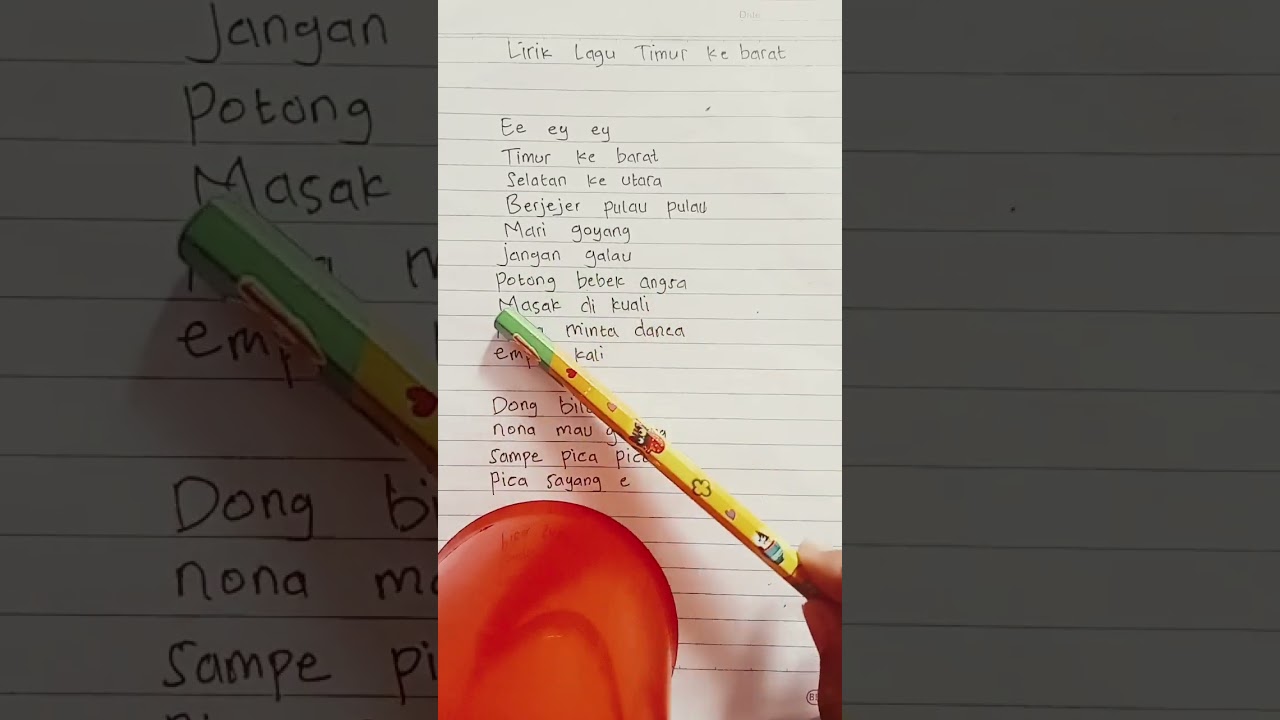 Lirik Lagu Timur ke barat
Ee ey ey
Timur ke barat
Selatan ke utara
Berjejer pulau pulau
Mari goyang
jangan galau
Potong bebek angsa
Masak di kuali
minta danca
kali
Dong
nona mau
sampe pica
Pica sayang e